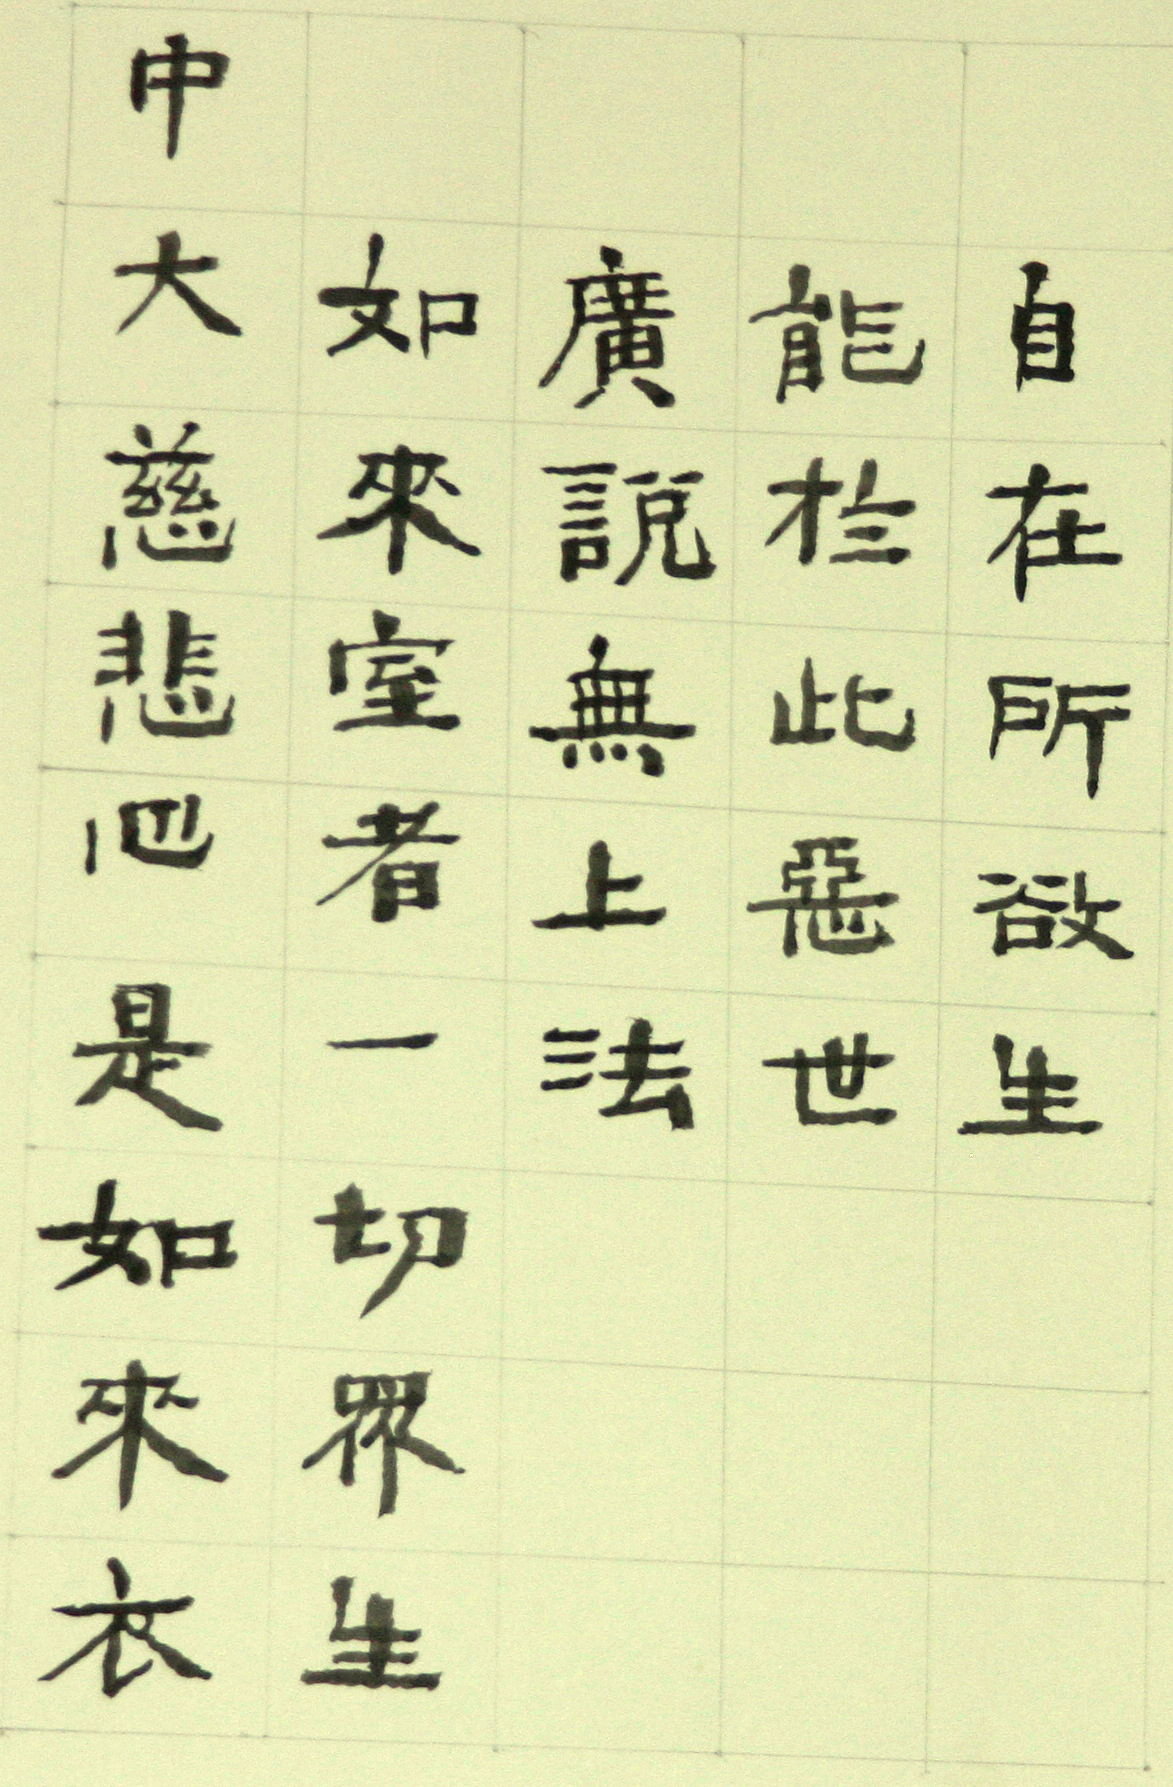 自在所欲生
能於此惡世
廣說無上法
如來室者一切眾生
中大慈悲心是如來衣